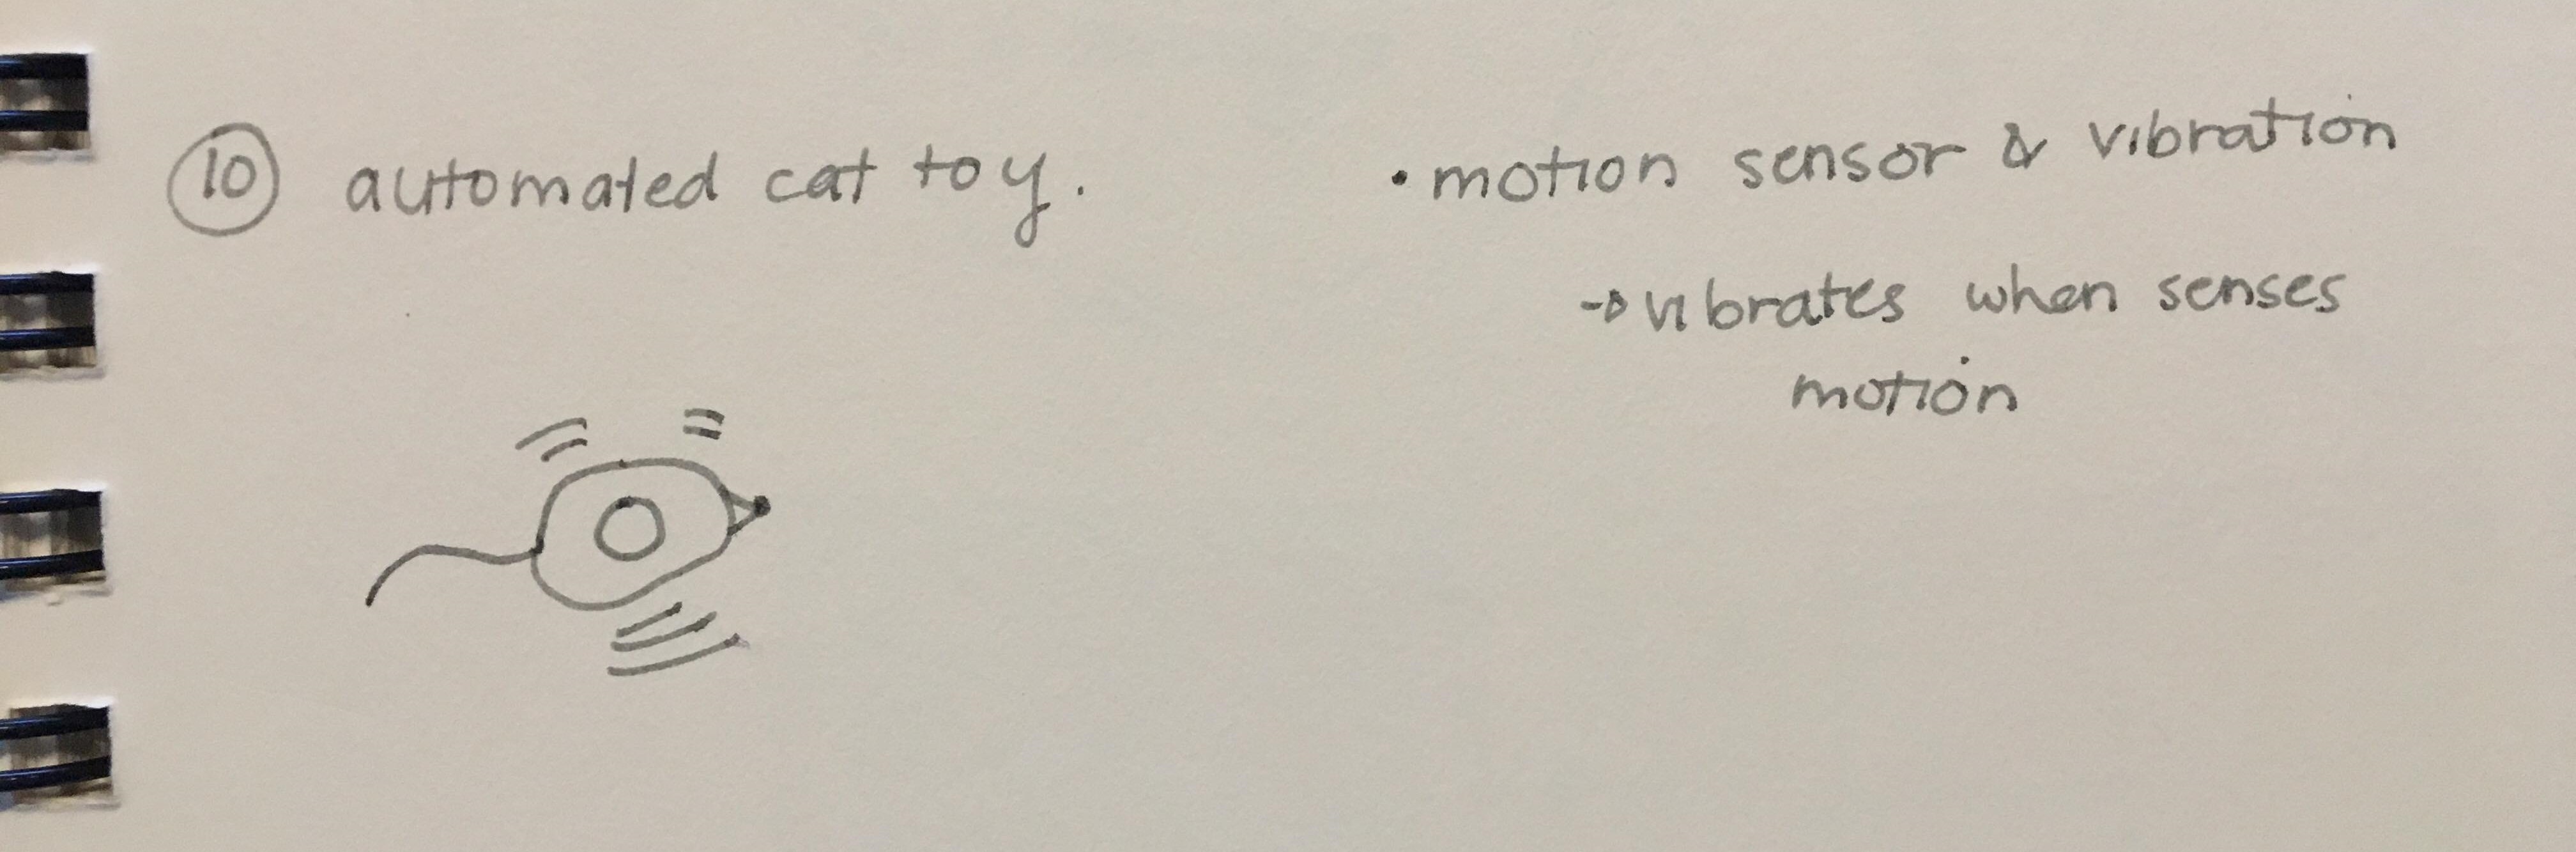 10 automated cat toy.
• motion sensor & vibration
→ vibrates when senses
motion